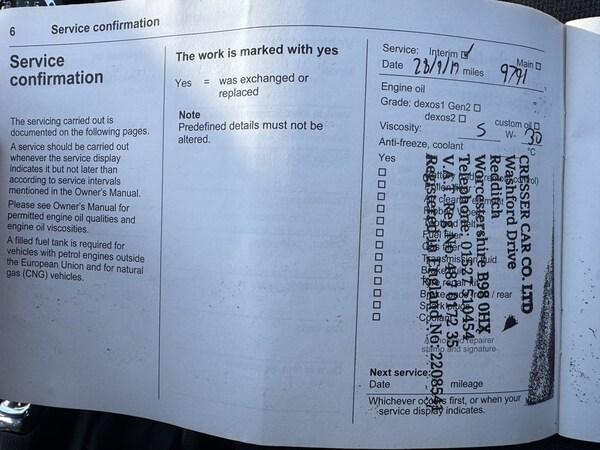 6 Service confirmation
Service
confirmation
The servicing carried out is
documented on the following pages.
A service should be carried out
whenever the service display
indicates it but not later than
according to service intervals
mentioned in the Owner's Manual.
Please see Owner's Manual for
permitted engine oil qualities and
engine oil viscosities.
A filled fuel tank is required for
vehicles with petrol engines outside
the European Union and for natural
gas (CNG) vehicles.
The work is marked with yes
Yes = was exchanged or
replaced
Note
Predefined details must not be
altered.
Service: Interim ☑ Main ☐
Date 28/9/17 miles 9791
Engine oil
Grade: dexos1 Gen2 ☐
dexos2 ☐ custom oil ☐
Viscosity: 5 W- 30
Anti-freeze, coolant °C
Yes
☐
☐
☐
☐
☐
☐
☐
☐ Transmission fluid
☐
☐
☐ / rear
☐
☐
CRESSER CAR CO. LTD
Washford Drive
Redditch
Worcestershire B98 0HX
Telephone: 01527 510454
Registered in England No.
repairer
stamp and signature
Next service:
Date mileage
Whichever occurs first, or when your
service display indicates.